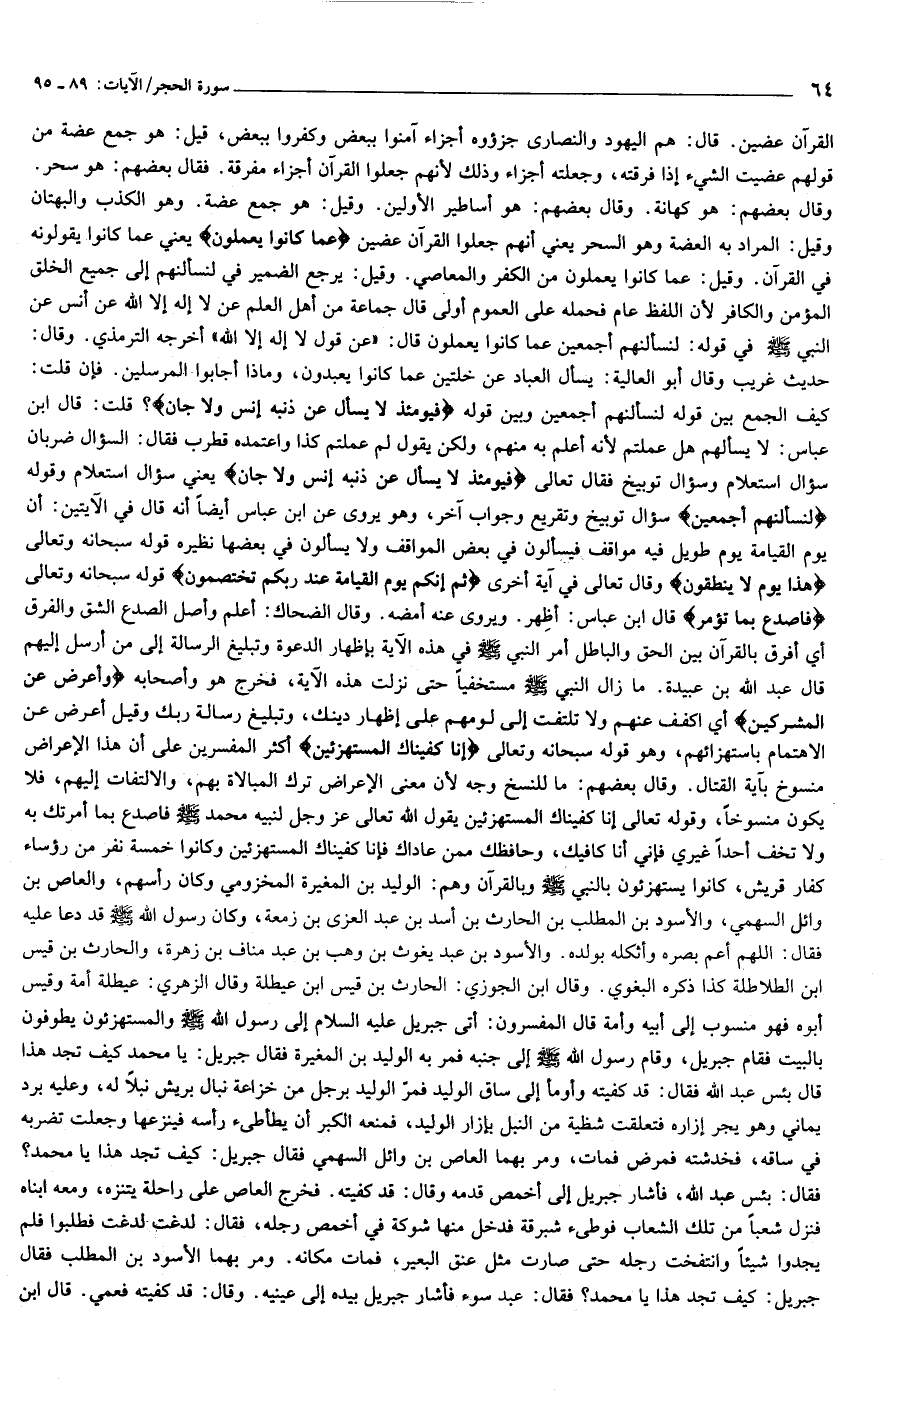 ٦٤ ــــــــ سورة الحجر/ الآيات: ٨٩ ـ ٩٥
القرآن عضين. قال: هم اليهود والنصارى جزؤوه أجزاء آمنوا ببعض وكفروا ببعض، قيل: هو جمع عضة من
قولهم عضيت الشيء إذا فرقته، وجعلته أجزاء وذلك لأنهم جعلوا القرآن أجزاء مفرقة. فقال بعضهم: هو سحر.
وقال بعضهم: هو كهانة. وقال بعضهم: هو أساطير الأولين. وقيل: هو جمع عضة. وهو الكذب والبهتان
وقيل: المراد به العضة وهو السحر يعني أنهم جعلوا القرآن عضين ﴿عما كانوا يعملون﴾ يعني عما كانوا يقولونه
في القرآن. وقيل: عما كانوا يعملون من الكفر والمعاصي. وقيل: يرجع الضمير في لنسألنهم إلى جميع الخلق
المؤمن والكافر لأن اللفظ عام فحمله على العموم أولى قال جماعة من أهل العلم عن لا إله إلا الله عن أنس عن
النبي ﷺ في قوله: لنسألنهم أجمعين عما كانوا يعملون قال: «عن قول لا إله إلا الله» أخرجه الترمذي. وقال:
حديث غريب وقال أبو العالية: يسأل العباد عن خلتين عما كانوا يعبدون، وماذا أجابوا المرسلين. فإن قلت:
كيف الجمع بين قوله لنسألنهم أجمعين وبين قوله ﴿فيومئذ لا يسأل عن ذنبه إنس ولا جان﴾؟ قلت: قال ابن
عباس: لا يسألهم هل عملتم لأنه أعلم به منهم، ولكن يقول لم عملتم كذا واعتمده قطرب فقال: السؤال ضربان
سؤال استعلام وسؤال توبيخ فقال تعالى ﴿فيومئذ لا يسأل عن ذنبه إنس ولا جان﴾ يعني سؤال استعلام وقوله
﴿لنسألنهم أجمعين﴾ سؤال توبيخ وتقريع وجواب آخر، وهو يروى عن ابن عباس أيضاً أنه قال في الآيتين: أن
يوم القيامة يوم طويل فيه مواقف فيسألون في بعض المواقف ولا يسألون في بعضها نظيره قوله سبحانه وتعالى
﴿هذا يوم لا ينطقون﴾ وقال تعالى في آية أخرى ﴿ثم إنكم يوم القيامة عند ربكم تختصمون﴾ قوله سبحانه وتعالى
﴿فاصدع بما تؤمر﴾ قال ابن عباس: أظهر. ويروى عنه أمضه. وقال الضحاك: أعلم وأصل الصدع الشق والفرق
أي أفرق بالقرآن بين الحق والباطل أمر النبي ﷺ في هذه الآية بإظهار الدعوة وتبليغ الرسالة إلى من أرسل إليهم
قال عبد الله بن عبيدة. ما زال النبي ﷺ مستخفياً حتى نزلت هذه الآية، فخرج هو وأصحابه ﴿وأعرض عن
المشركين﴾ أي اكفف عنهم ولا تلتفت إلى لومهم على إظهار دينك، وتبليغ رسالة ربك وقيل أعرض عن
الاهتمام باستهزائهم، وهو قوله سبحانه وتعالى ﴿إنا كفيناك المستهزئين﴾ أكثر المفسرين على أن هذا الإعراض
منسوخ بآية القتال. وقال بعضهم: ما للنسخ وجه لأن معنى الإعراض ترك المبالاة بهم، والالتفات إليهم، فلا
يكون منسوخاً، وقوله تعالى إنا كفيناك المستهزئين يقول الله تعالى عز وجل لنبيه محمد ﷺ فاصدع بما أمرتك به
ولا تخف أحداً غيري فإني أنا كافيك، وحافظك ممن عاداك فإنا كفيناك المستهزئين وكانوا خمسة نفر من رؤساء
كفار قريش، كانوا يستهزئون بالنبي ﷺ وبالقرآن وهم: الوليد بن المغيرة المخزومي وكان رأسهم، والعاص بن
وائل السهمي، والأسود بن المطلب بن الحارث بن أسد بن عبد العزى بن زمعة، وكان رسول الله ﷺ قد دعا عليه
فقال: اللهم أعم بصره وأثكله بولده. والأسود بن عبد يغوث بن وهب بن عبد مناف بن زهرة، والحارث بن قيس
ابن الطلاطلة كذا ذكره البغوي. وقال ابن الجوزي: الحارث بن قيس ابن عيطلة وقال الزهري: عيطلة أمة وقيس
أبوه فهو منسوب إلى أبيه وأمة قال المفسرون: أتى جبريل عليه السلام إلى رسول الله ﷺ والمستهزئون يطوفون
بالبيت فقام جبريل، وقام رسول الله ﷺ إلى جنبه فمر به الوليد بن المغيرة فقال جبريل: يا محمد كيف تجد هذا
قال بئس عبد الله فقال: قد كفيته وأومأ إلى ساق الوليد فمرّ الوليد برجل من خزاعة نبال بريش نبلاً له، وعليه برد
يماني وهو يجر إزاره فتعلقت شظية من النبل بإزار الوليد، فمنعه الكبر أن يطأطىء رأسه فينزعها وجعلت تضربه
في ساقه، فخدشته فمرض فمات، ومر بهما العاص بن وائل السهمي فقال جبريل: كيف تجد هذا يا محمد؟
فقال: بئس عبد الله، فأشار جبريل إلى أخمص قدمه وقال: قد كفيته. فخرج العاص على راحلة يتنزه، ومعه ابناه
فنزل شعباً من تلك الشعاب فوطىء شبرقة فدخل منها شوكة في أخمص رجله، فقال: لدغت لدغت فطلبوا فلم
يجدوا شيئاً وانتفخت رجله حتى صارت مثل عنق البعير، فمات مكانه. ومر بهما الأسود بن المطلب فقال
جبريل: كيف تجد هذا يا محمد؟ فقال: عبد سوء فأشار جبريل بيده إلى عينيه. وقال: قد كفيته فعمي. قال ابن